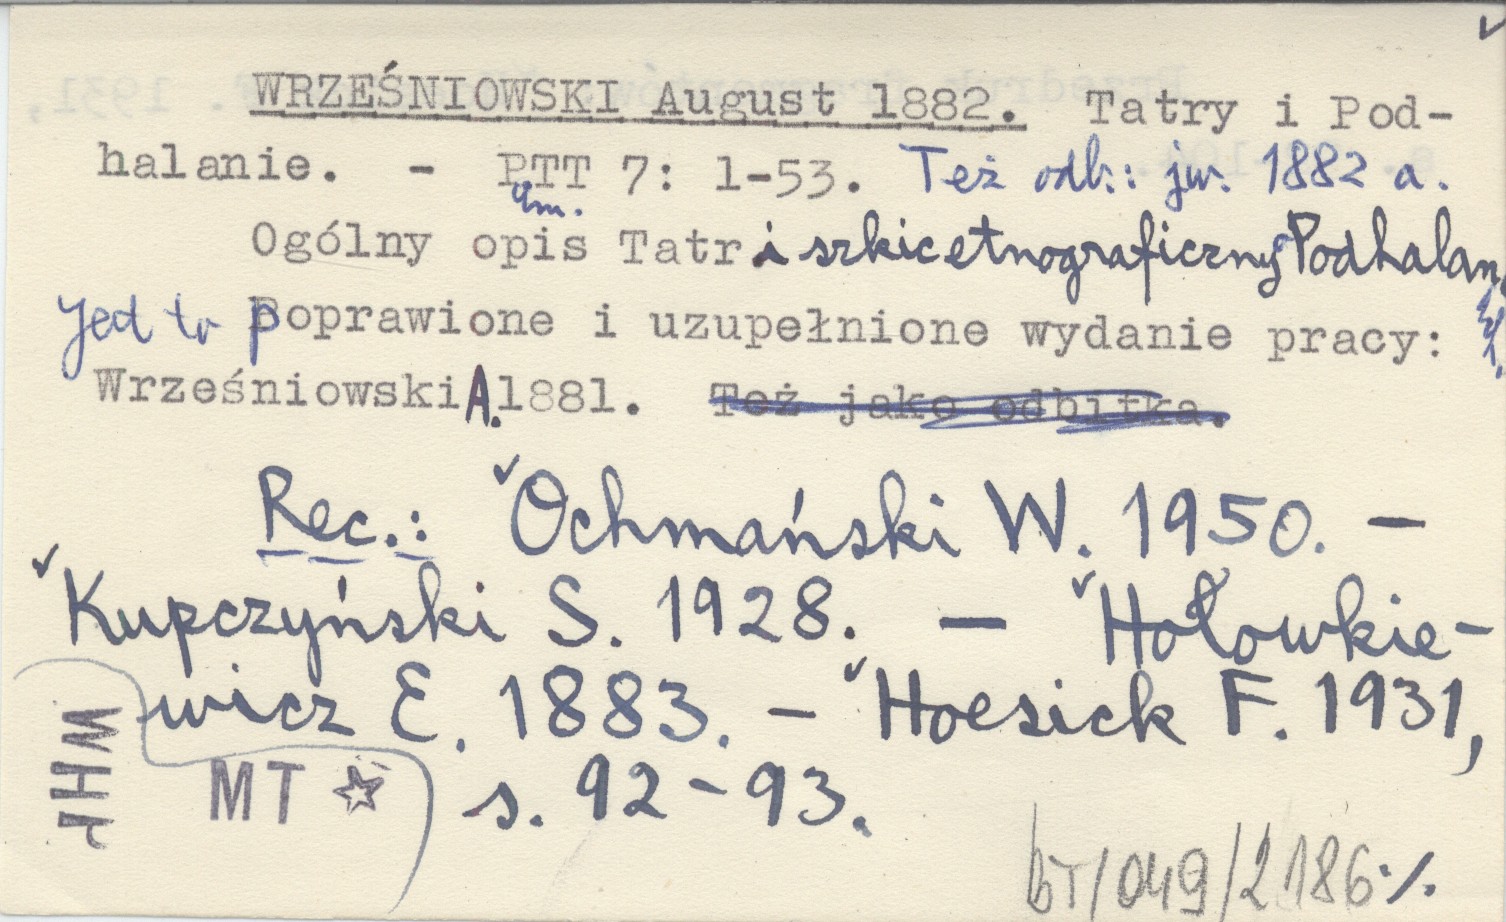 WRZEŚNIOWSKI August 1882. Tatry i Pod-
halanie. - PTT 7: 1-53. Też odb.: jw. 1882 a.
Ogólny opis Tatr i szkic etnograficzny Podhalan.
Jest to poprawione i uzupełnione wydanie pracy:
Wrześniowski A. 1881. Też jako odbitka.
Rec.: Ochmański W. 1950. —
Kupczyński S. 1928. — Hołowkie-
wicz E. 1883. — Hoesick F. 1931,
s. 92-93.
WHR
MT ☆
bT/049/2186·/.